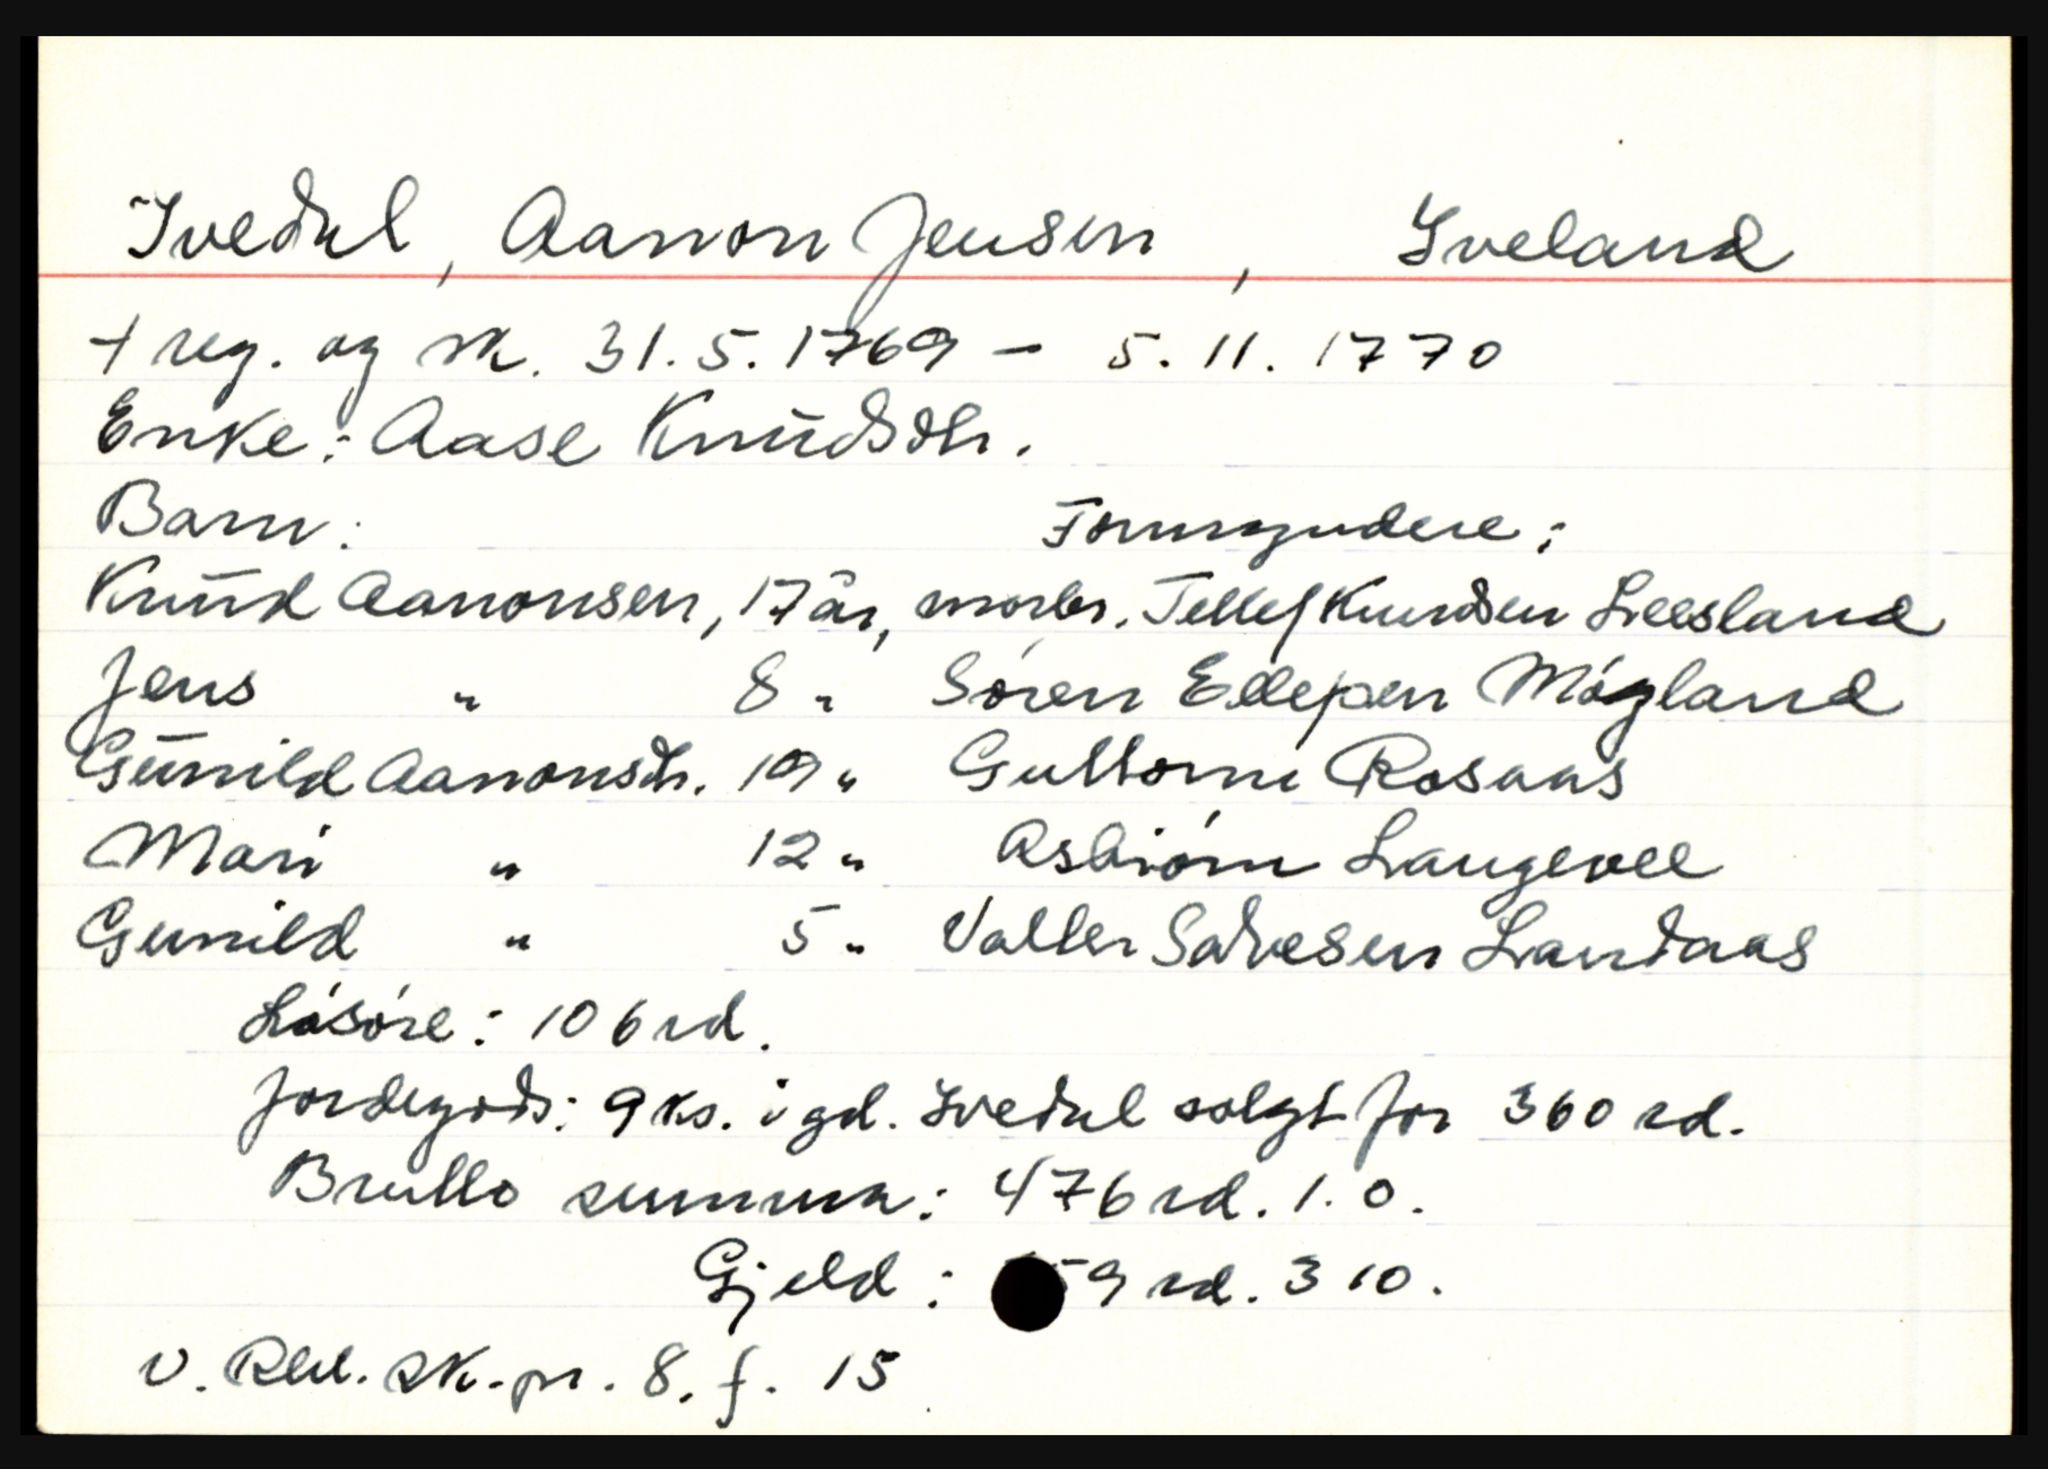 Ivedal, Aanon Jensen, Iveland
† reg. og sk. 31.5.1769 - 5.11.1770
Enke: Aase Knudsdtr.
Barn: Formyndere:
Knud Aanonsen, 17 år, morbr. Tellef Knudsen Leesland
Jens " 8 " Søren Ellefsen Møgland
Gunild Aanonsdtr. 19 " Guttorm Rosaas
Mari " 12 " Asbiørn Langevel
Gunild " 5 " Valler Salvesen Landaas
Løsøre: 106 rd.
Jordegods: 9 ks. i gd. Ivedal solgt for 360 rd.
Brutto summa: 476 rd. 1. 0.
Gjeld: 59 rd. 3 10.
v. Rbl. sk.pr. 8. f. 15